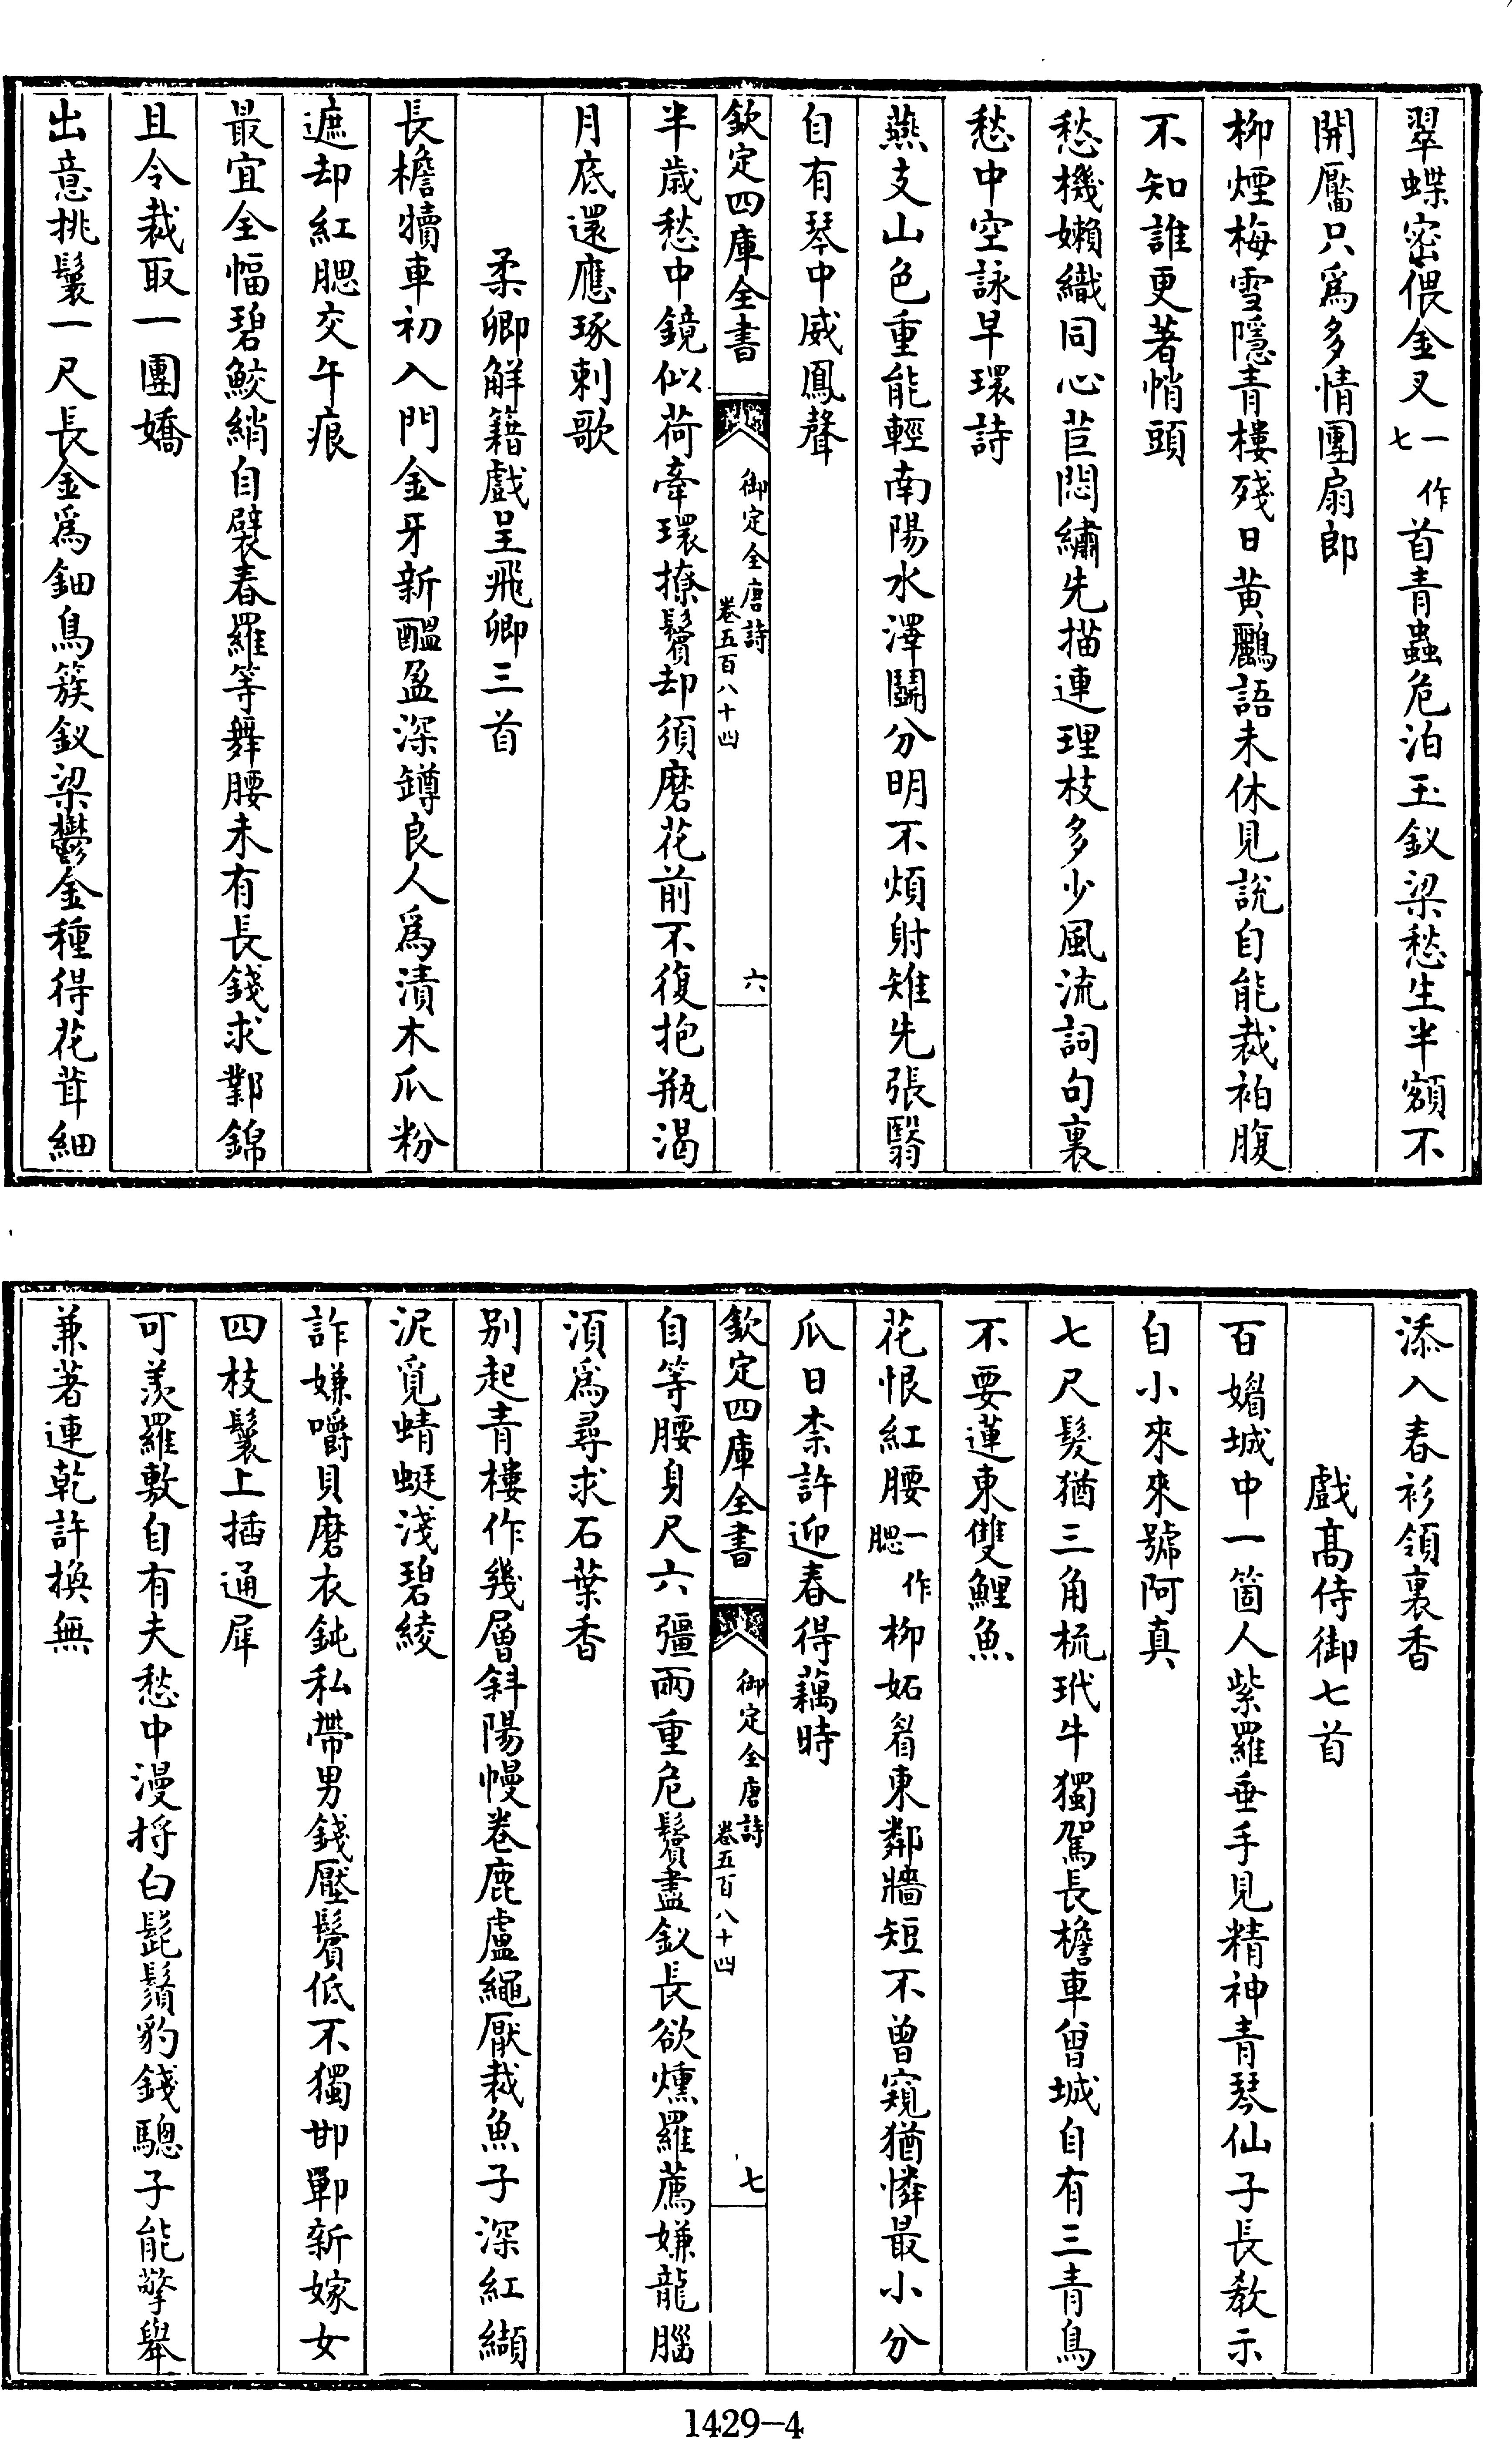 翠蝶密偎金叉一作七首青蟲危泊玉釵梁愁生半額不
開靨只為多情團扇郎
柳煙梅雪隱青樓殘日黃鸝語未休見說自能裁袙腹
不知誰更著帩頭
愁機嬾織同心苣悶繡先描連理枝多少風流詞句裏
愁中空詠早環詩
燕支山色重能輕南陽水澤鬬分明不煩射雉先張翳
自有琴中威鳳聲
欽定四庫全書
御定全唐詩
卷五百八十四
六
半歲愁中鏡似荷牽環撩鬢却須磨花前不復抱瓶渴
月底還應琢刺歌
柔卿解籍戲呈飛卿三首
長檐犢車初入門金牙新醞盈深罇良人為漬木瓜粉
遮却紅腮交午痕
最宜全幅碧鮫綃自襞春羅等舞腰未有長錢求鄴錦
且令裁取一團嬌
出意挑鬟一尺長金為鈿鳥簇釵梁鬱金種得花茸細
添入春衫領裏香
戲高侍御七首
百媚城中一箇人紫羅垂手見精神青琴仙子長教示
自小來來號阿真
七尺髮猶三角梳玳牛獨駕長檐車曾城自有三青鳥
不要蓮東雙鯉魚
花恨紅腰一作腮柳妬眉東鄰牆短不曾窺猶憐最小分
瓜日柰許迎春得藕時
欽定四庫全書
御定全唐詩
卷五百八十四
七
自等腰身尺六彊兩重危鬢盡釵長欲燻羅薦嫌龍腦
須為尋求石葉香
別起青樓作幾層斜陽幔卷鹿盧繩厭裁魚子深紅纈
泥覓蜻蜓淺碧綾
詐嫌嚼貝磨衣鈍私帶男錢壓鬢低不獨邯鄲新嫁女
四枝鬟上插通犀
可羨羅敷自有夫愁中漫捋白髭鬚豹錢驄子能擎舉
兼著連乾許換無
1429-4